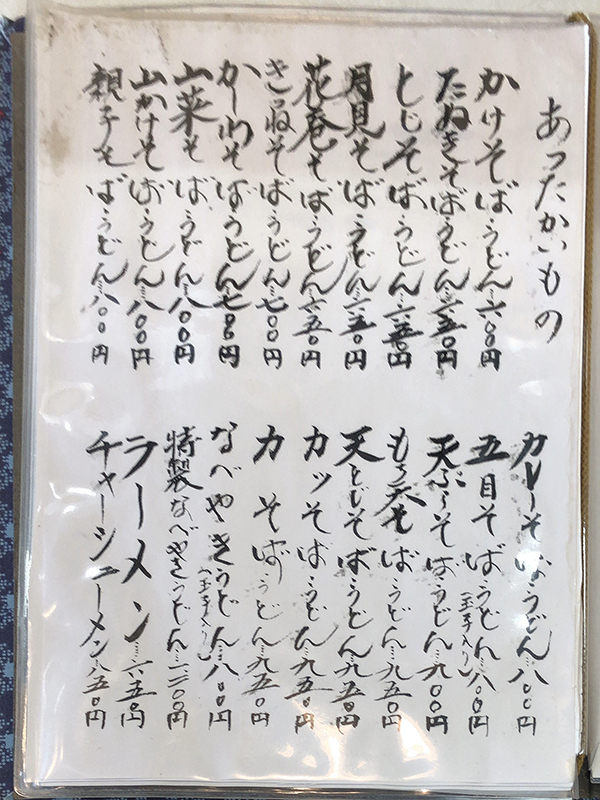 あったかいもの
かけそばうどん…六〇〇円
たぬきそばうどん…六五〇円
とじそばうどん…六五〇円
月見そばうどん…六五〇円
花巻そばうどん…六五〇円
きつねそばうどん…七〇〇円
かしわそばうどん…七〇〇円
山菜そばうどん…八〇〇円
山かけそばうどん…八〇〇円
親子そばうどん…八〇〇円
カレーそばうどん…八〇〇円
五目そばうどん…八〇〇円
(玉子入り)
天ぷらそばうどん…九〇〇円
もち天そばうどん…九五〇円
天とじそばうどん…九五〇円
カツそばうどん…九五〇円
力そばうどん…九五〇円
なべやきうどん…八〇〇円
(玉子入り)
特製なべやきうどん
ラーメン…六五〇円
チャーシューメン…八五〇円